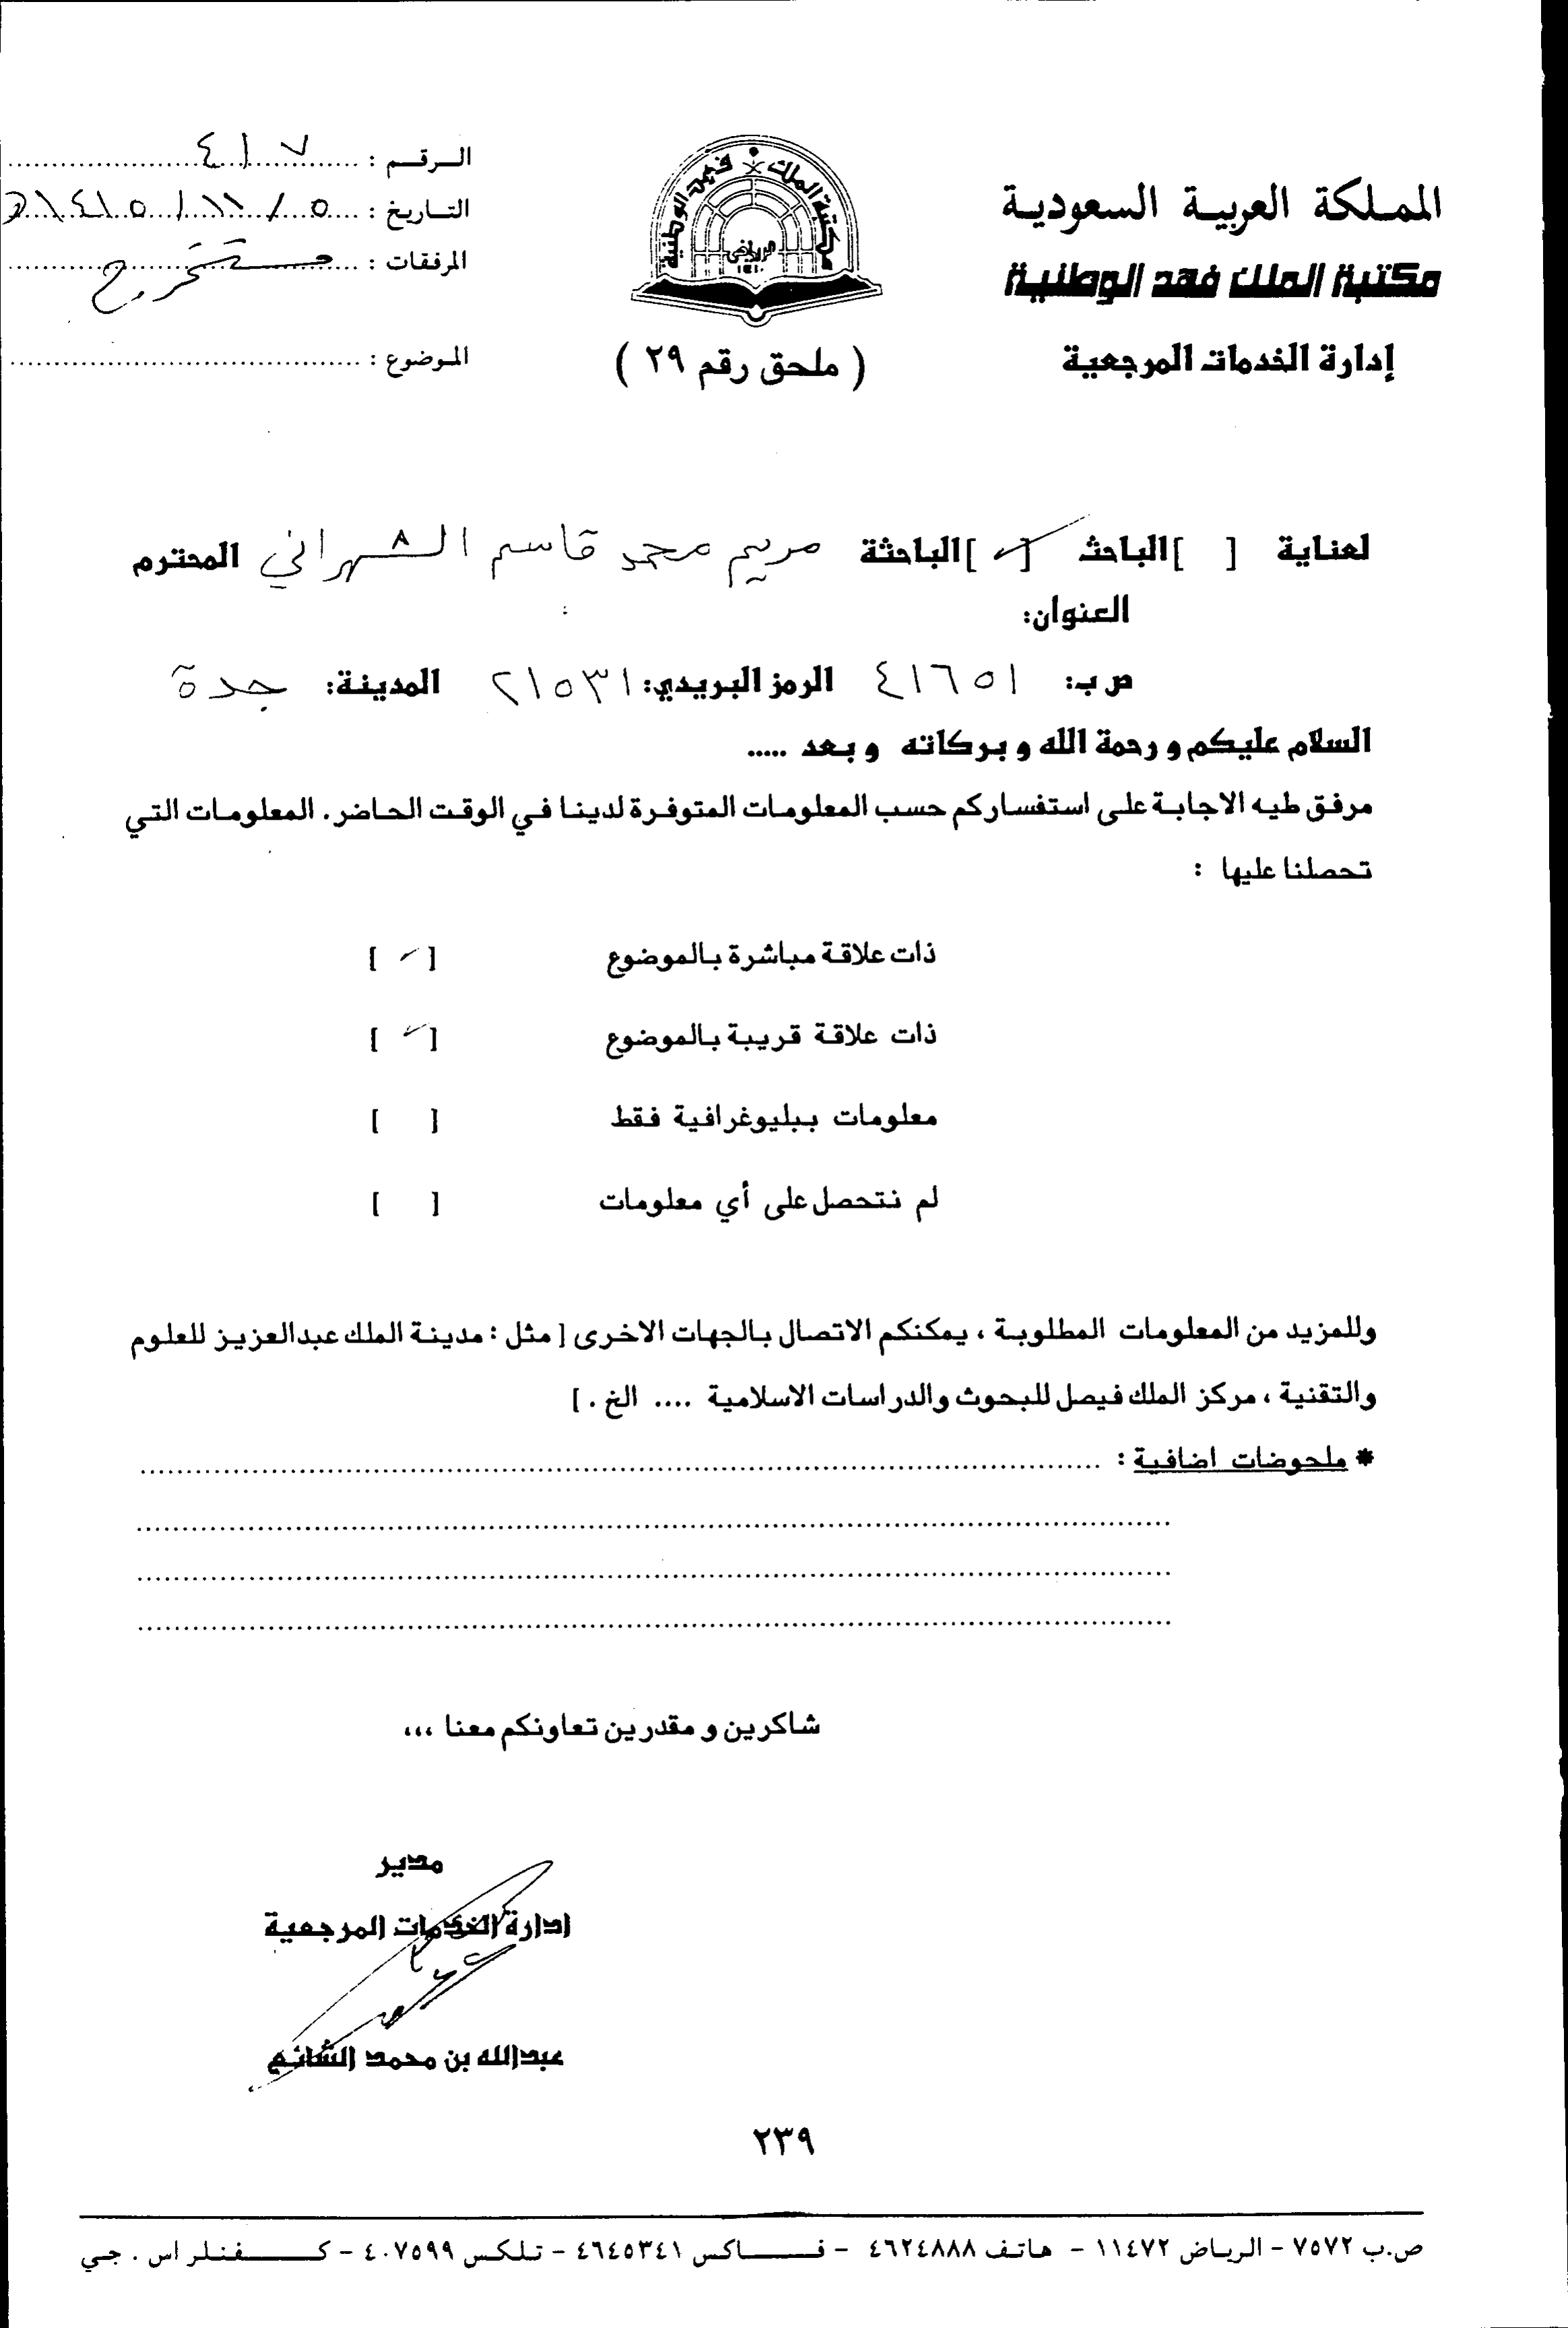 المملكة العربية السعودية
مكتبة الملك فهد الوطنية
إدارة الخدمات المرجعية
مكتبة الملك فهد الوطنية
الرياض
١٤١٠
( ملحق رقم ٢٩ )
الـرقـم : ٤١٧
التـاريخ : ٥ / ١١ / ١٤١٥هـ
المرفقات :
الموضوع :
لعناية [ ] الباحث [✓] الباحثة مريم محمد قاسم الشهراني المحترم
العنوان:
ص ب: ٤١٦٥١ الرمز البريدي: ٢١٥٣١ المدينة: جدة
السلام عليكم و رحمة الله و بركاته و بعد .....
مرفق طيه الاجابة على استفساركم حسب المعلومات المتوفرة لدينا في الوقت الحاضر. المعلومات التي
تحصلنا عليها :
ذات علاقة مباشرة بالموضوع [✓]
ذات علاقة قريبة بالموضوع [✓]
معلومات ببليوغرافية فقط [ ]
لم نتحصل على أي معلومات [ ]
وللمزيد من المعلومات المطلوبة ، يمكنكم الاتصال بالجهات الاخرى [ مثل : مدينة الملك عبدالعزيز للعلوم
والتقنية ، مركز الملك فيصل للبحوث والدراسات الاسلامية .... الخ . ]
* ملحوضات اضافية :
شاكرين و مقدرين تعاونكم معنا ،،،
مدير
إدارة الخدمات المرجعية
عبدالله بن محمد الشائع
٢٣٩
ص.ب ٧٥٧٢ - الرياض ١١٤٧٢ - هاتف ٤٦٢٤٨٨٨ - فـــاكس ٤٦٤٥٣٤١ - تلكس ٤٠٧٥٩٩ - كـــفنلر اس . جي